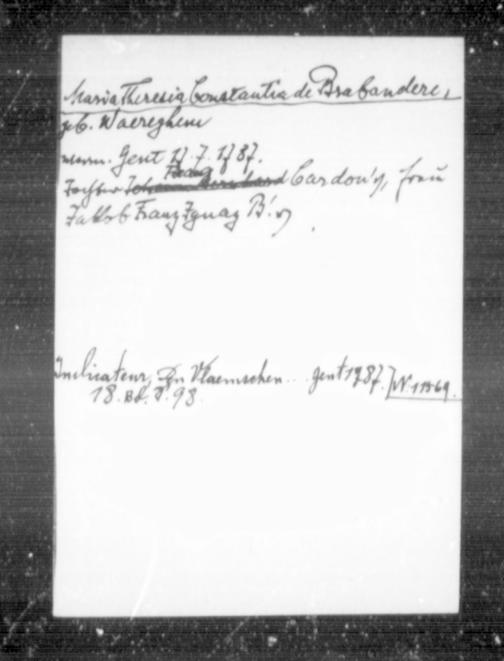 Maria Theresia Constantia de Brabandere,
geb. Waereghem
verm. Gent 17.7.1787.
Tochter Johann Bernhard Cardon's, Frau
Jakob Franz Ignaz B!s
Indicateur, Den Vlaemschen... Gent 1787. / N. 11569.
18. Bd. S. 98